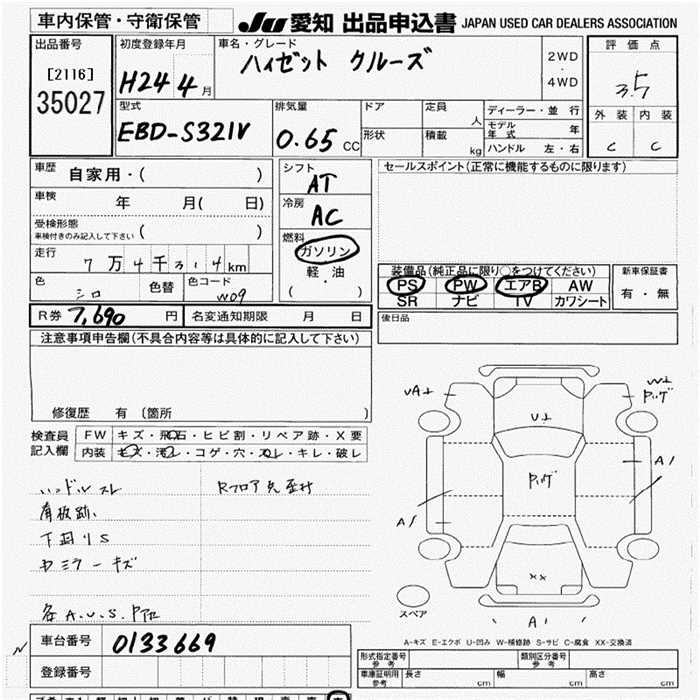 車内保管・守衛保管
JU 愛知 出品申込書 JAPAN USED CAR DEALERS ASSOCIATION
出品番号
[2116]
35027
初度登録年月
H24 4月
車名・グレード
ハイゼット クルーズ
2WD
・
4WD
評価点
3.5
外装 内装
C C
型式
EBD-S321V
排気量
0.65 CC
ドア
形状
定員 人
積載 kg
ディーラー・並行
モデル年式 年
ハンドル 左・右
車歴
自家用・( )
車検
年 月( 日)
受検形態
車検付きのみ記入して下さい ( )
走行
7万4千314km
色
シロ
色替
色コード
W09
シフト
AT
冷房
AC
燃料
ガソリン
軽・油
( )
セールスポイント(正常に機能するものに限ります)
装備品(純正品に限り○をつけてください)
PS PW エアB AW
SR ナビ TV カワシート
新車保証書
有・無
後日品
R券 7,690 円
名変通知期限 月 日
注意事項申告欄(不具合内容等は具体的に記入して下さい)
修復歴 有 〔箇所 〕
検査員記入欄
FW キズ・飛石・ヒビ割・リペア跡・X要
内装 キズ・汚レ・コゲ・穴・スレ・キレ・破レ
ハンドルスレ
看板跡
下廻りS
各A.U.S.P他
A1
A1
A1
XX
スペア
A-キズ E-エクボ U-凹み W-補修跡 S-サビ C-腐食 XX-交換済
車台番号
0133669
登録番号
形式指定番号 参考
類別区分番号 参考
車庫証明用 参考
長さ cm
幅 cm
高さ cm